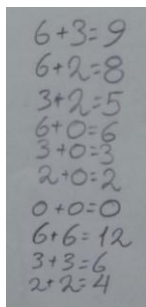 6+3=9
6+2=8
3+2=5
6+0=6
3+0=3
2+0=2
0+0=0
6+6=12
3+3=6
2+2=4